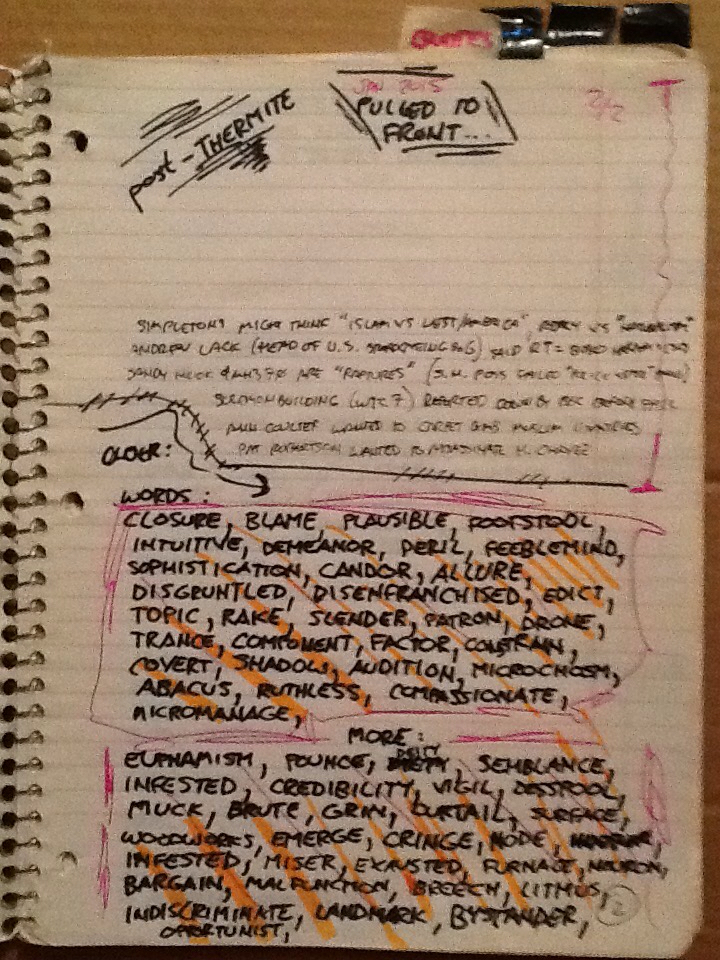 QUOTES
JAN 2015
PULLED TO
FRONT...
2/2
post-THERMITE
SIMPLETONS MIGHT THINK "ISLAM VS WEST/AMERICA", VS
ANDREW LACK (HEAD OF U.S. ) SAID RT =
SANDY HOOK & MH370 ARE "RAPTURES"
BUILDING (WTC 7) REPORTED DOWN BY BBC BEFORE FELL
ANN COULTER WANTED TO MUSLIM COUNTRIES
PAT ROBERTSON WANTED TO ASSASSINATE H. CHAVEZ
OLDER:
WORDS:
CLOSURE, BLAME, PLAUSIBLE, FOOTSTOOL,
INTUITIVE, DEMEANOR, PERIL, FEEBLEMIND,
SOPHISTICATION, CANDOR, ALLURE,
DISGRUNTLED, DISENFRANCHISED, EDICT,
TOPIC, RAKE, SLENDER, PATRON, DRONE,
TRANCE, COMPONENT, FACTOR, CONSTRAIN,
COVERT, SHADOW, AUDITION, MICROCHOSM,
ABACUS, RUTHLESS, COMPASSIONATE,
MICROMANAGE,
MORE:
EUPHAMISM, POUNCE, DEITY, SEMBLANCE,
INFESTED, CREDIBILITY, VIGIL, CESSPOOL,
MUCK, BRUTE, GRIN, CURTAIL, SURFACE,
WOODWORKS, EMERGE, CRINGE, NODE,
INFESTED, MISER, EXAUSTED, FURNACE, NEURON,
BARGAIN, MALFUNCTION, BREECH, LITMUS,
INDISCRIMINATE, LANDMARK, BYSTANDER,
OPPORTUNIST,
2